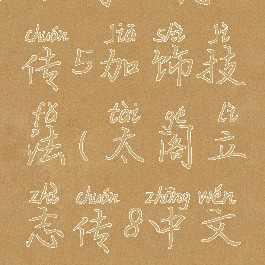 chuán jiā shì jì
传5加饰技
fǎ tài gé lì
法(太阁立
zhì chuán zhōng wén
志传8中文